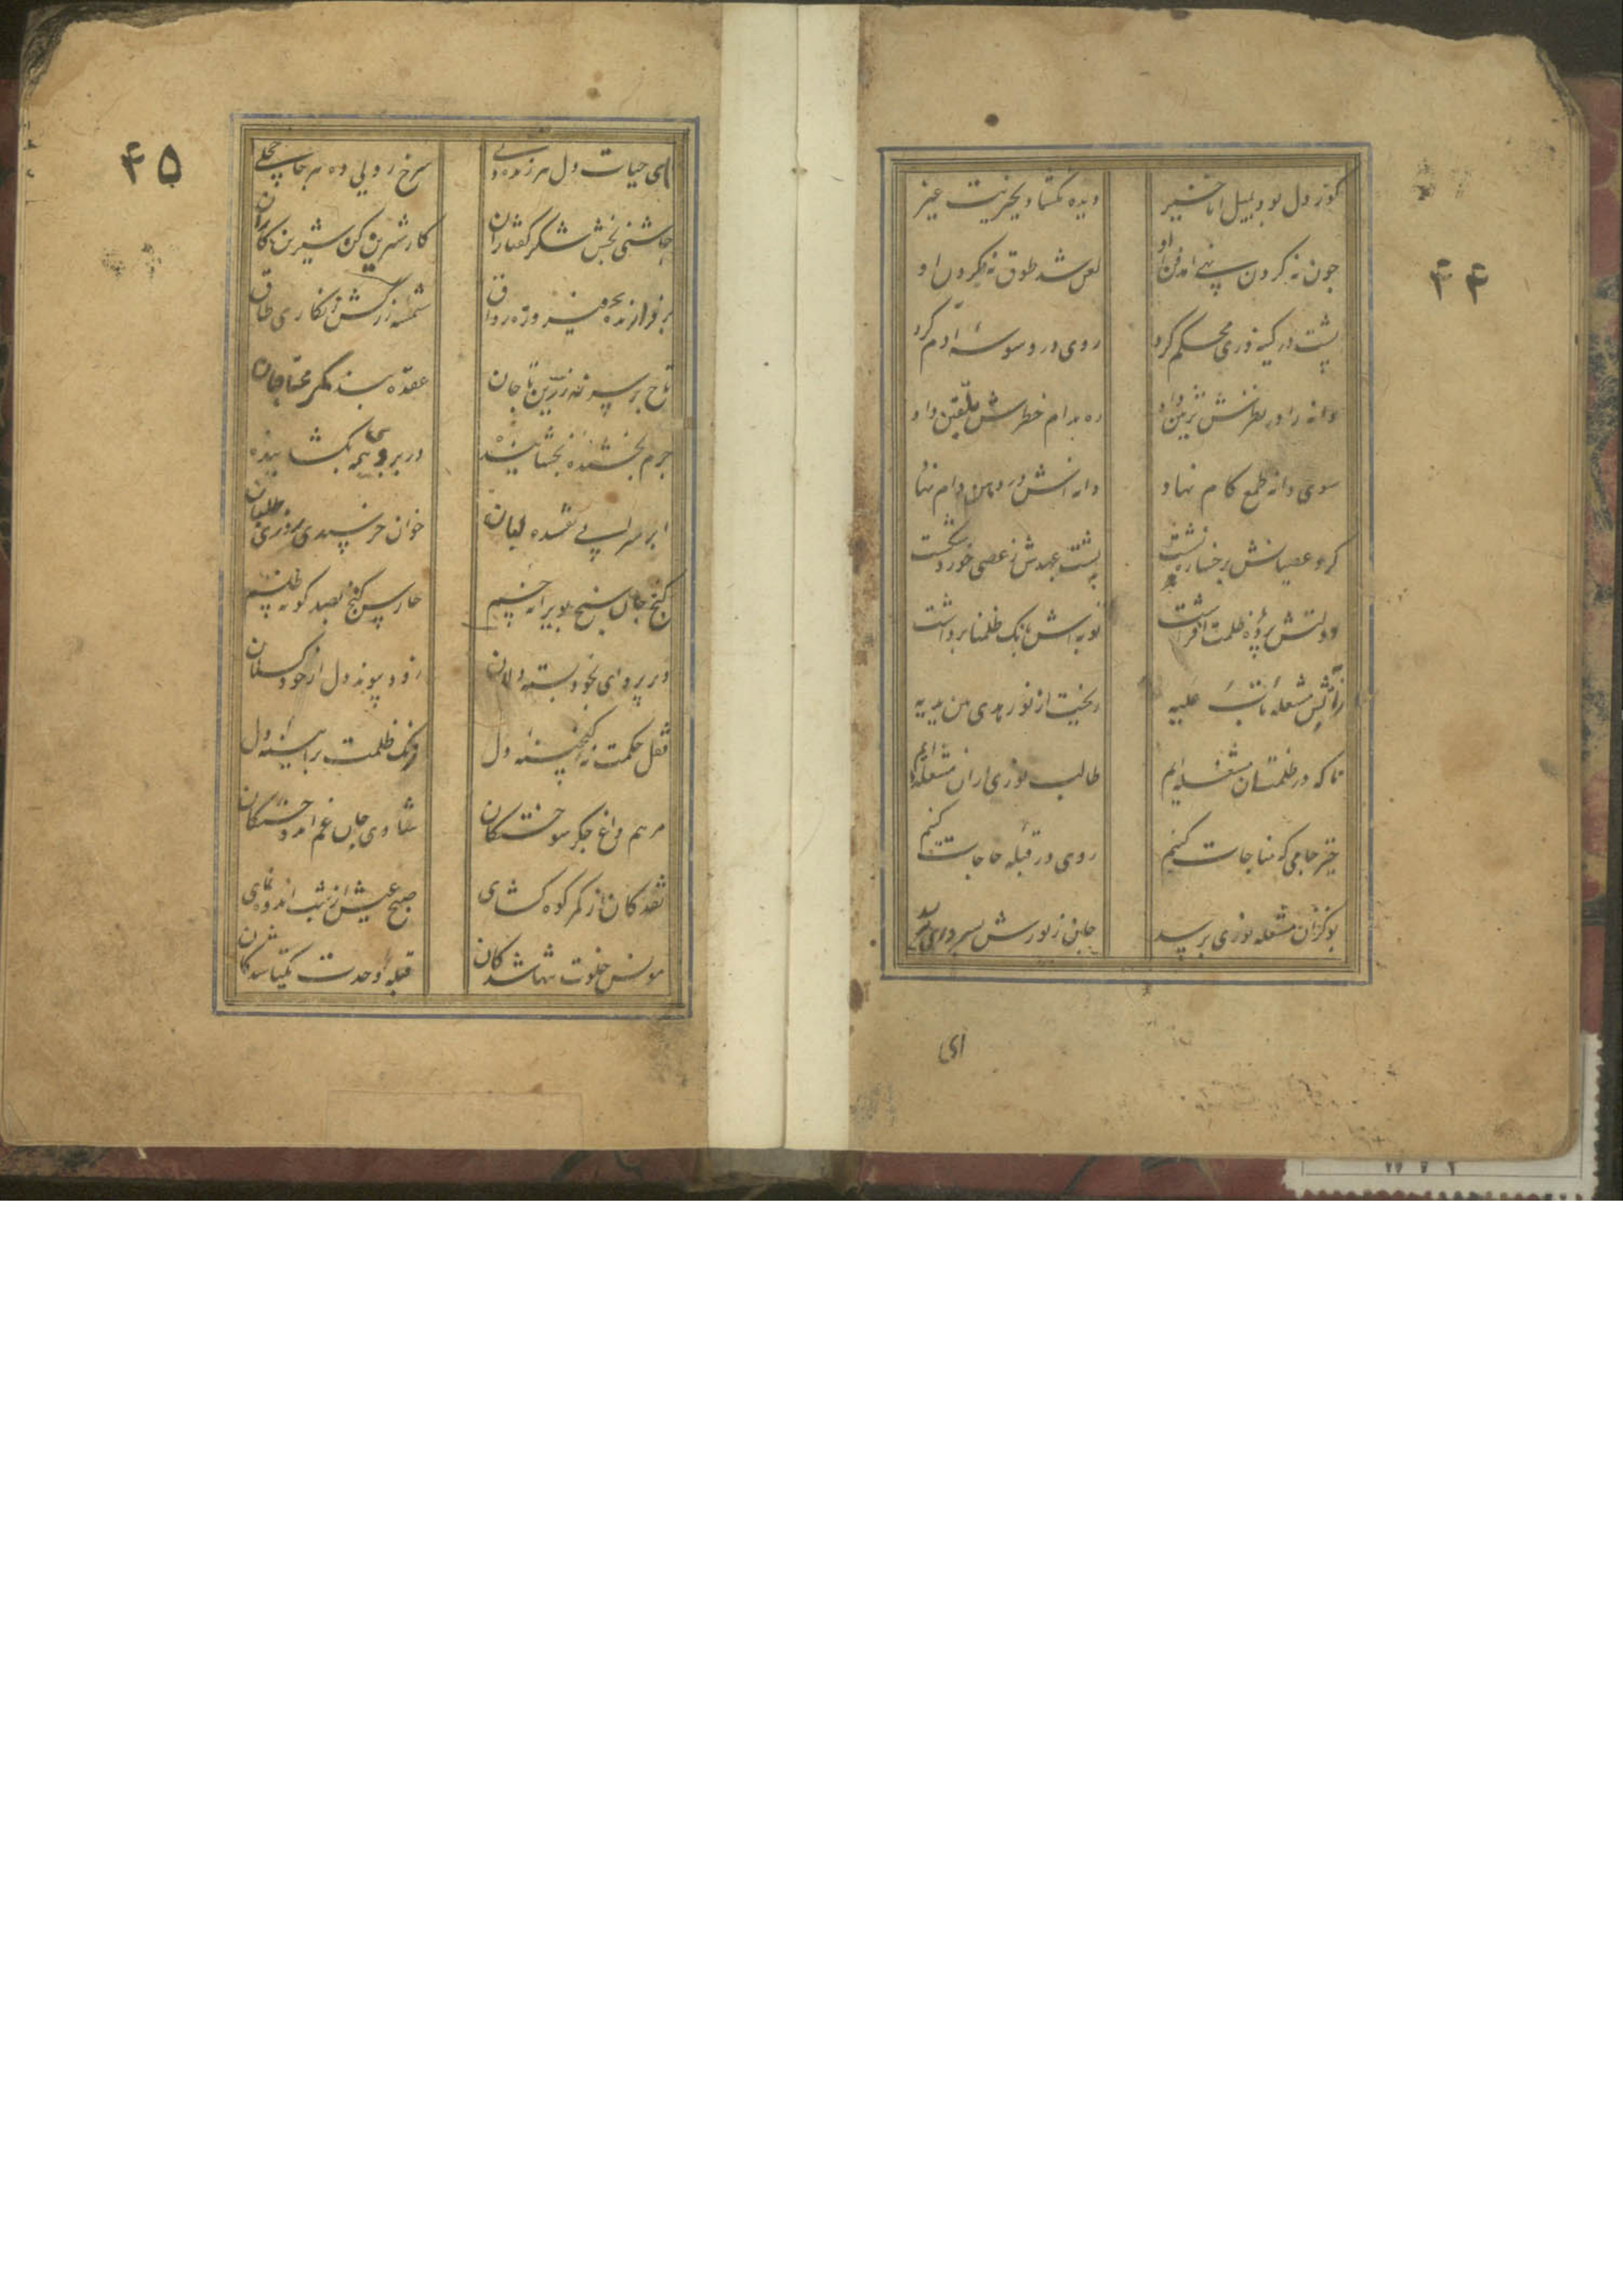 ۴۴
کور دل بود بدلیل انا خیر
دیده نگشاد بخیریت غیر
چون نه گردن پی امد فن او
لعن شد طوق نه گردن او
پشت در کینه وری محکم کرد
روی در وسوسهٔ آدم کرد
دانه را در نظرش تزیین داد
ره بدام خطرش تلقین داد
سوی دانه طمع کام نهاد
دانه اش در دهن دام نهاد
گرد عصیانش برخسار نشست
پشت عهدش ز عصی خورد شکست
دولتش پرده ظلمت افراشت
توبه اش بانگ ظلمنا برداشت
زآتش مشعلهٔ تاب علیه
ریخت از نور هدی من یدیه
ما که در ظلمتیان مشغله ایم
طالب نوری ازان مشعله ایم
خیز جامی که مناجات کنیم
روی در قبله حاجات کنیم
بو کزان مشعله نوری برسد
جان ز نورش بسر
ای
۴۵
ای حیات دل هر زنده دلی
سرخ رویی ده هر جا خجلی
چاشنی بخش شکر گفتاران
کار شیرین کن شیرین کاران
بر فرازنده فیروزه رواق
شمسه زرکش زنگاری طاق
تاج بر سر نه زرین تاجان
عقده بند کمر محتاجان
جرم بخشنده بخشاینده
در بر روی همه بگشاینده
ابر سیرابی تفسیده لبان
خوان خرسندی روزی طلبان
گنج جان سنج بویرانه جسم
حارس گنج بصد گونه طلسم
در بروی بخود بسته دلان
زود پیوند دل از خود گسلان
قفل حکمت نه گنجینه دل
زنگ ظلمت بر آیینه دل
مرهم داغ جگر سوختگان
شادی جان غم اندوختگان
نقد کان از کمر کوه گشای
صبح عیش از شب اندوه نمای
مونس خلوت تنها شدگان
قبله وحدت یکتا شدگان